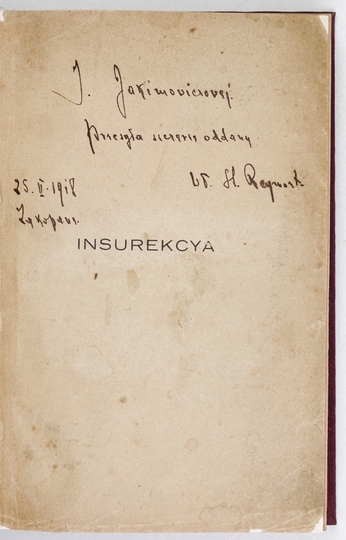 J. Jakimowiczowej
Przesyła szczerze oddany
Wł. St. Reymont
25. II. 1918
Zakopane.
INSUREKCYA